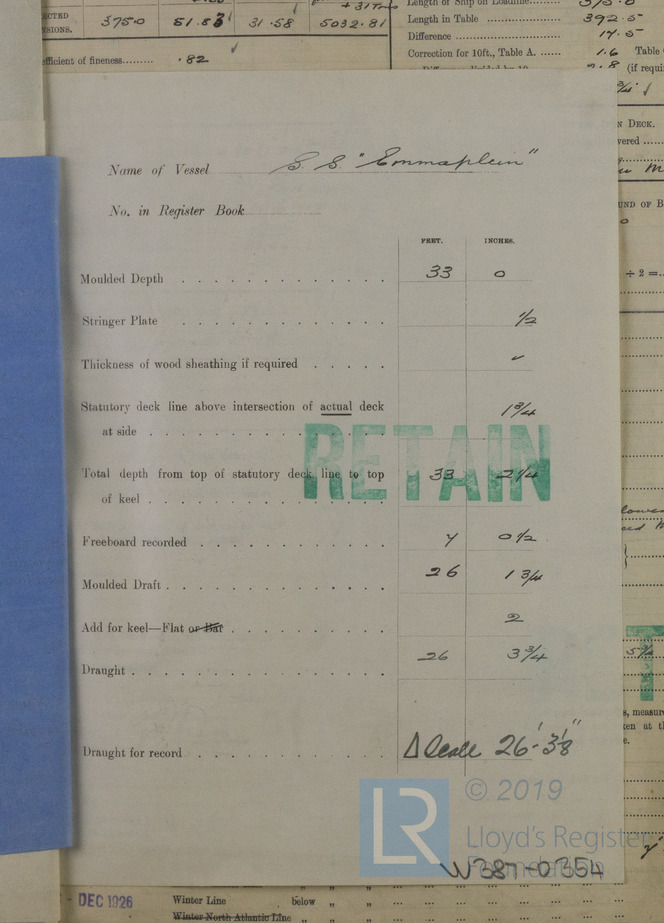 + 31 Tons
ECTED
NSIONS.
375.0 51.83 31.58 5032.81
efficient of fineness......... .82
Length of Ship on Loadline
Length in Table 392.5
Difference 17.5
Correction for 10ft., Table A. ...... 1.6 Table
(if requi
N DECK.
vered
UND OF B
÷ 2 =
Name of Vessel S.S. "Emmaplein"
No. in Register Book
FEET. INCHES.
Moulded Depth 33 0
Stringer Plate 1/2
Thickness of wood sheathing if required ✓
Statutory deck line above intersection of actual deck
at side 1 3/4
RETAIN
Total depth from top of statutory deck line to top 33 2 1/4
of keel
Freeboard recorded 7 0 1/2
Moulded Draft 26 1 3/4
Add for keel—Flat or Bar 2
Draught 26 3 3/4
Draught for record Δ Scale 26'-3 
s, measur
ken at th
e.
© 2019
LR
Lloyd's Register
Foundation
W387-0354
DEC 1926
Winter Line below " "
Winter North Atlantic Line " "